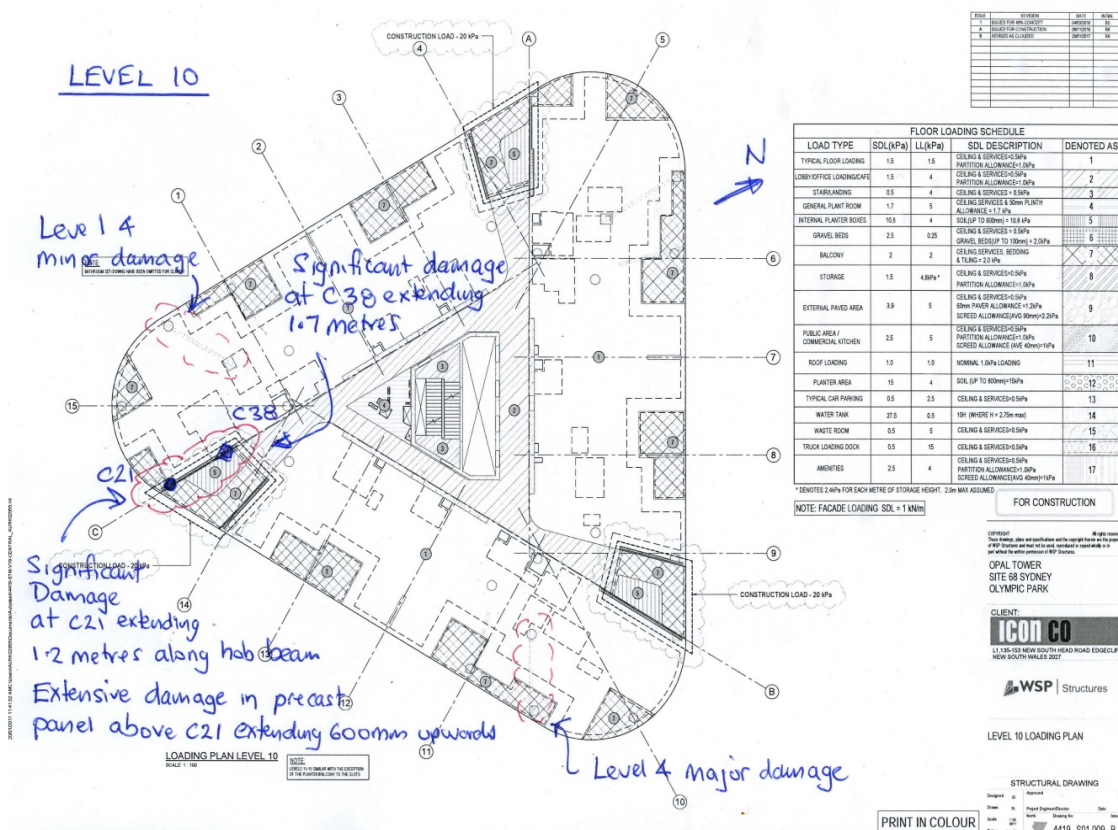 LEVEL 10
CONSTRUCTION LOAD - 20 kPa
A
4
5
3
2
1
6
7
8
9
10
11
12
13
14
15
B
C
N
Level 4
minor damage
Significant damage
at C38 extending
1.7 metres
C38
C21
CONSTRUCTION LOAD - 20 kPa
Significant
Damage
at C21 extending
1.2 metres along hob beam
Extensive damage in precast
panel above C21 extending 600mm upwards
Level 4 major damage
CONSTRUCTION LOAD - 20 kPa
LOADING PLAN LEVEL 10
SCALE 1 : 100
NOTE:
ISSUE REVISION DATE
1 ISSUED FOR 90% CONCEPT
A ISSUED FOR CONSTRUCTION
B REVISED AS CLOUDED
FLOOR LOADING SCHEDULE
LOAD TYPE SDL(kPa) LL(kPa) SDL DESCRIPTION DENOTED AS
TYPICAL FLOOR LOADING 1.5 1.5 CEILING & SERVICES=0.5kPa PARTITION ALLOWANCE=1.0kPa 1
LOBBY/OFFICE LOADING/CAFE 1.5 4 CEILING & SERVICES=0.5kPa PARTITION ALLOWANCE=1.0kPa 2
STAIR/LANDING 0.5 4 CEILING & SERVICES = 0.5kPa 3
GENERAL PLANT ROOM 1.7 5 CEILING,SERVICES & 50mm PLINTH ALLOWANCE = 1.7 kPa 4
INTERNAL PLANTER BOXES 10.8 4 SOIL(UP TO 600mm) = 10.8 kPa 5
GRAVEL BEDS 2.5 0.25 CEILING & SERVICES = 0.5kPa GRAVEL BEDS(UP TO 100mm) = 2.0kPa 6
BALCONY 2 2 CEILING,SERVICES, BEDDING & TILING = 2.0 kPa 7
STORAGE 1.5 4.8kPa * CEILING & SERVICES=0.5kPa PARTITION ALLOWANCE=1.0kPa 8
EXTERNAL PAVED AREA 3.9 5 CEILING & SERVICES=0.5kPa 50mm PAVER ALLOWANCE =1.2kPa SCREED ALLOWANCE(AVG 90mm)=2.2kPa 9
PUBLIC AREA / COMMERCIAL KITCHEN 2.5 5 CEILING & SERVICES=0.5kPa PARTITION ALLOWANCE=1.0kPa SCREED ALLOWANCE (AVE 40mm)=1kPa 10
ROOF LOADING 1.0 1.0 NOMINAL 1.0kPa LOADING 11
PLANTER AREA 15 4 SOIL (UP TO 800mm)=15kPa 12
TYPICAL CAR PARKING 0.5 2.5 CEILING & SERVICES=0.5kPa 13
WATER TANK 27.5 0.5 10H (WHERE H = 2.75m max) 14
WASTE ROOM 0.5 5 CEILING & SERVICES=0.5kPa 15
TRUCK LOADING DOCK 0.5 15 CEILING & SERVICES=0.5kPa 16
AMENITIES 2.5 4 CEILING & SERVICES=0.5kPa PARTITION ALLOWANCE=1.0kPa SCREED ALLOWANCE(AVG 40mm)=1kPa 17
* DENOTES 2.4kPa FOR EACH METRE OF STORAGE HEIGHT. 2.0m MAX ASSUMED
NOTE: FACADE LOADING SDL = 1 kN/m
FOR CONSTRUCTION
COPYRIGHT
OPAL TOWER
SITE 68 SYDNEY
OLYMPIC PARK
CLIENT:
ICON CO
L1,135-153 NEW SOUTH HEAD ROAD EDGECLIFF
NEW SOUTH WALES 2027
WSP | Structures
LEVEL 10 LOADING PLAN
STRUCTURAL DRAWING
4419 S01.009 B
PRINT IN COLOUR